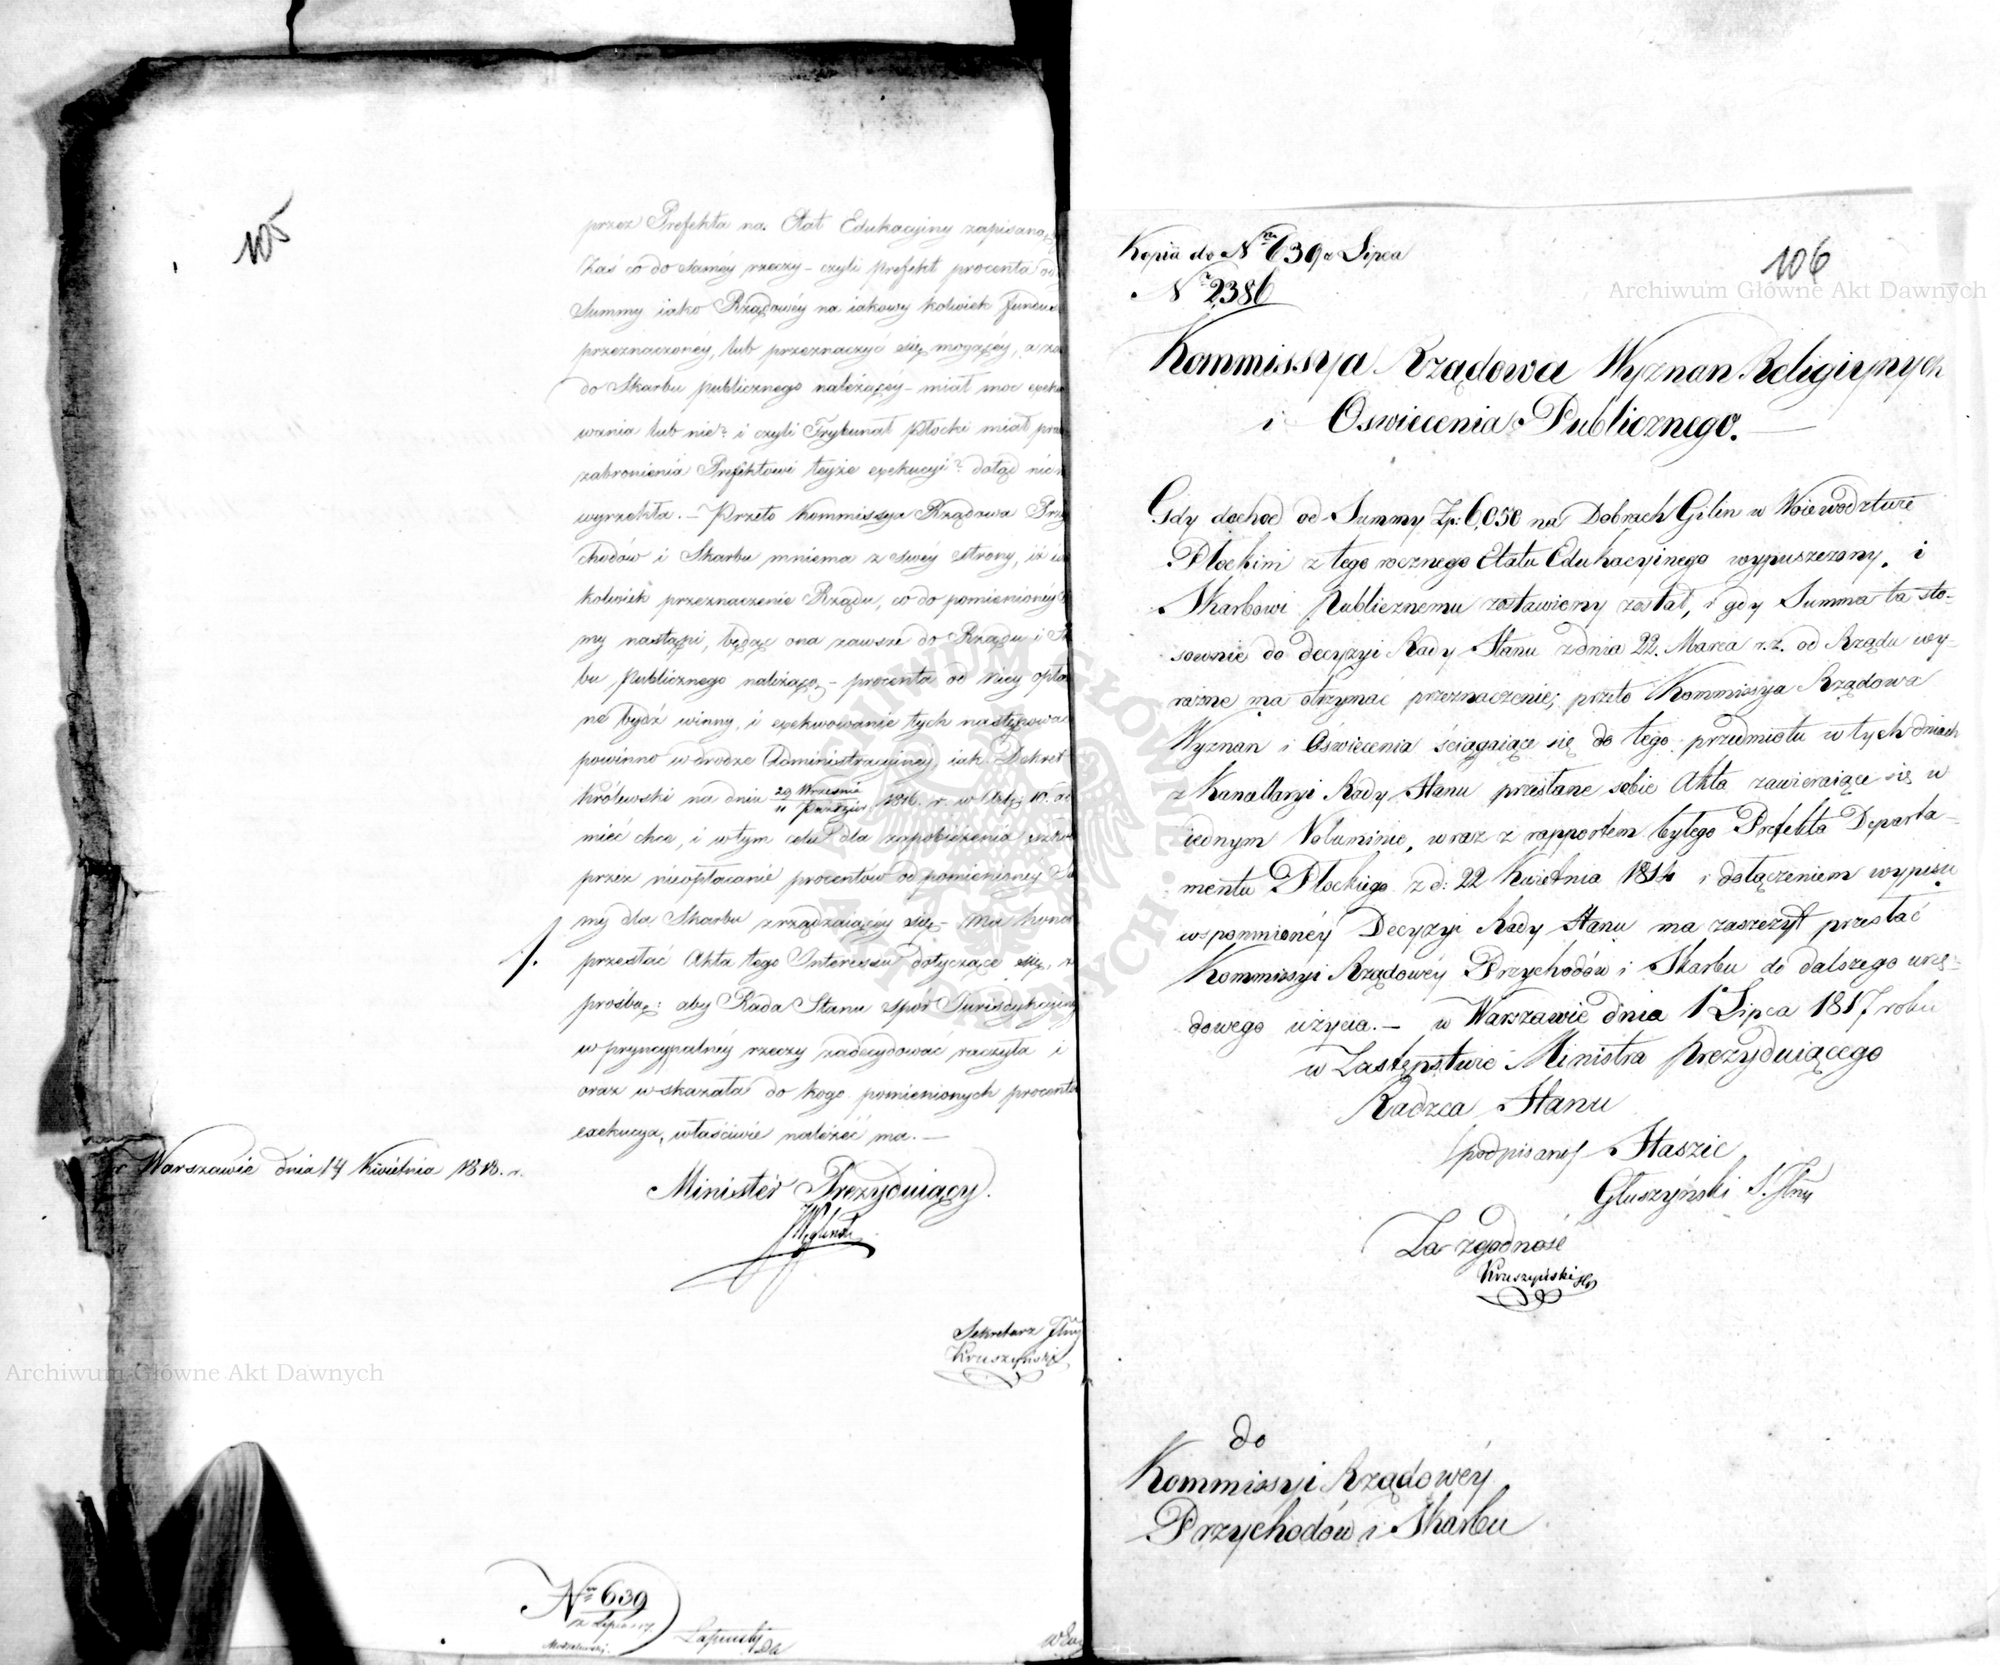 105
przez Prefekta na Etat Edukacyiny zapisaną,
Zaś co do saméy rzeczy – czyli prefekt procenta od
Summy iako Rządowéy na iakowy kolwiek fundusz
przeznaczonéy, lub przeznaczyć się mogącey, a za
do Skarbu publicznego należącéy – miał moc exekwo
wania lub nie? i czyli Trybunał Płocki miał praw
zabronienia Prefektowi teyże exekucyi? dotąd nie
wyrzekła. – Przeto Kommissya Rządowa Przy
chodów i Skarbu mniema z swéy strony, iż
kolwiek przeznaczenie Rządu, co do pomienionéy
my nastąpi, będąc ona zawsze do Rządu i Skar
bu Publicznego należącą, – procenta od niey opła
ne bydź winny, i exekwowanie tych następować
powinno w drodze Administracyiney, iak Dekret
Królewski na dniu 29 Września / 11 Paźdźier 1816. r. w Art: 10.
mieć chce, i w tym celu dla zapobieżenia szko
przez nieopłacanie procentów od pomienioney Su
my dla Skarbu zrządzaiącey się – ma honor
przesłać Akta tego Interessu dotyczące się,
prośbą: aby Rada Stanu spór Jurisdykcyiny
w pryncypalnéy rzeczy zadecydować raczyła i
oraz wskazała do kogo pomienionych procentów
exekucya, właściwie należéć ma. –
w Warszawie dnia 14 Kwietnia 1818. r.
Minister Prezyduiący.
Węgleński
Sekretarz Jlny
Kruszyński
No 639
Kopiia do Nru 639 a Lipca
No 2386
106
Archiwum Główne Akt Dawnych
Kommissya Rządowa Wyznan Religiynych
i Oswiecenia Publicznego.
Gdy dochod od Summy Zp: 6,050 na Dobrach Gilin w Woiewodztwie
Płockim z tego rocznego Etatu Edukacyinego wypuszczony, i
Skarbowi Publicznemu zostawiony został, i gdy Summa ta sto-
sownie do decyzyi Rady Stanu z dnia 22. Marca r. z. od Rządu wy-
raźne ma otrzymać przeznaczenie; przeto Kommissya Rządowa
Wyznan i Oświecenia ściągaiące się do tego przedmiotu w tych dniach
z Kancellaryi Rady Stanu przesłane sobie Akta zawieraiące się w
iednym Voluminie, wraz z rapportem byłego Prefekta Departa-
mentu Płockiego z d: 22 Kwietnia 1814 i dołączeniem wypisu
wspomnionéy Decyzyi Rady Stanu ma zaszczyt przesłać
Kommissyi Rządowéy Przychodów i Skarbu do dalszego urzę-
dowego użycia. – w Warszawie dnia 1 Lipca 1817 roku
w Zastępstwie Ministra Prezyduiącego
Radzca Stanu
/podpisano/ Staszic
Głuszyński S. Jlny
Za zgodność
Kruszyński
do
Kommissyi Rządowéy
Przychodów i Skarbu
Archiwum Główne Akt Dawnych
ARCHIWUM GŁÓWNE AKT DAWNYCH